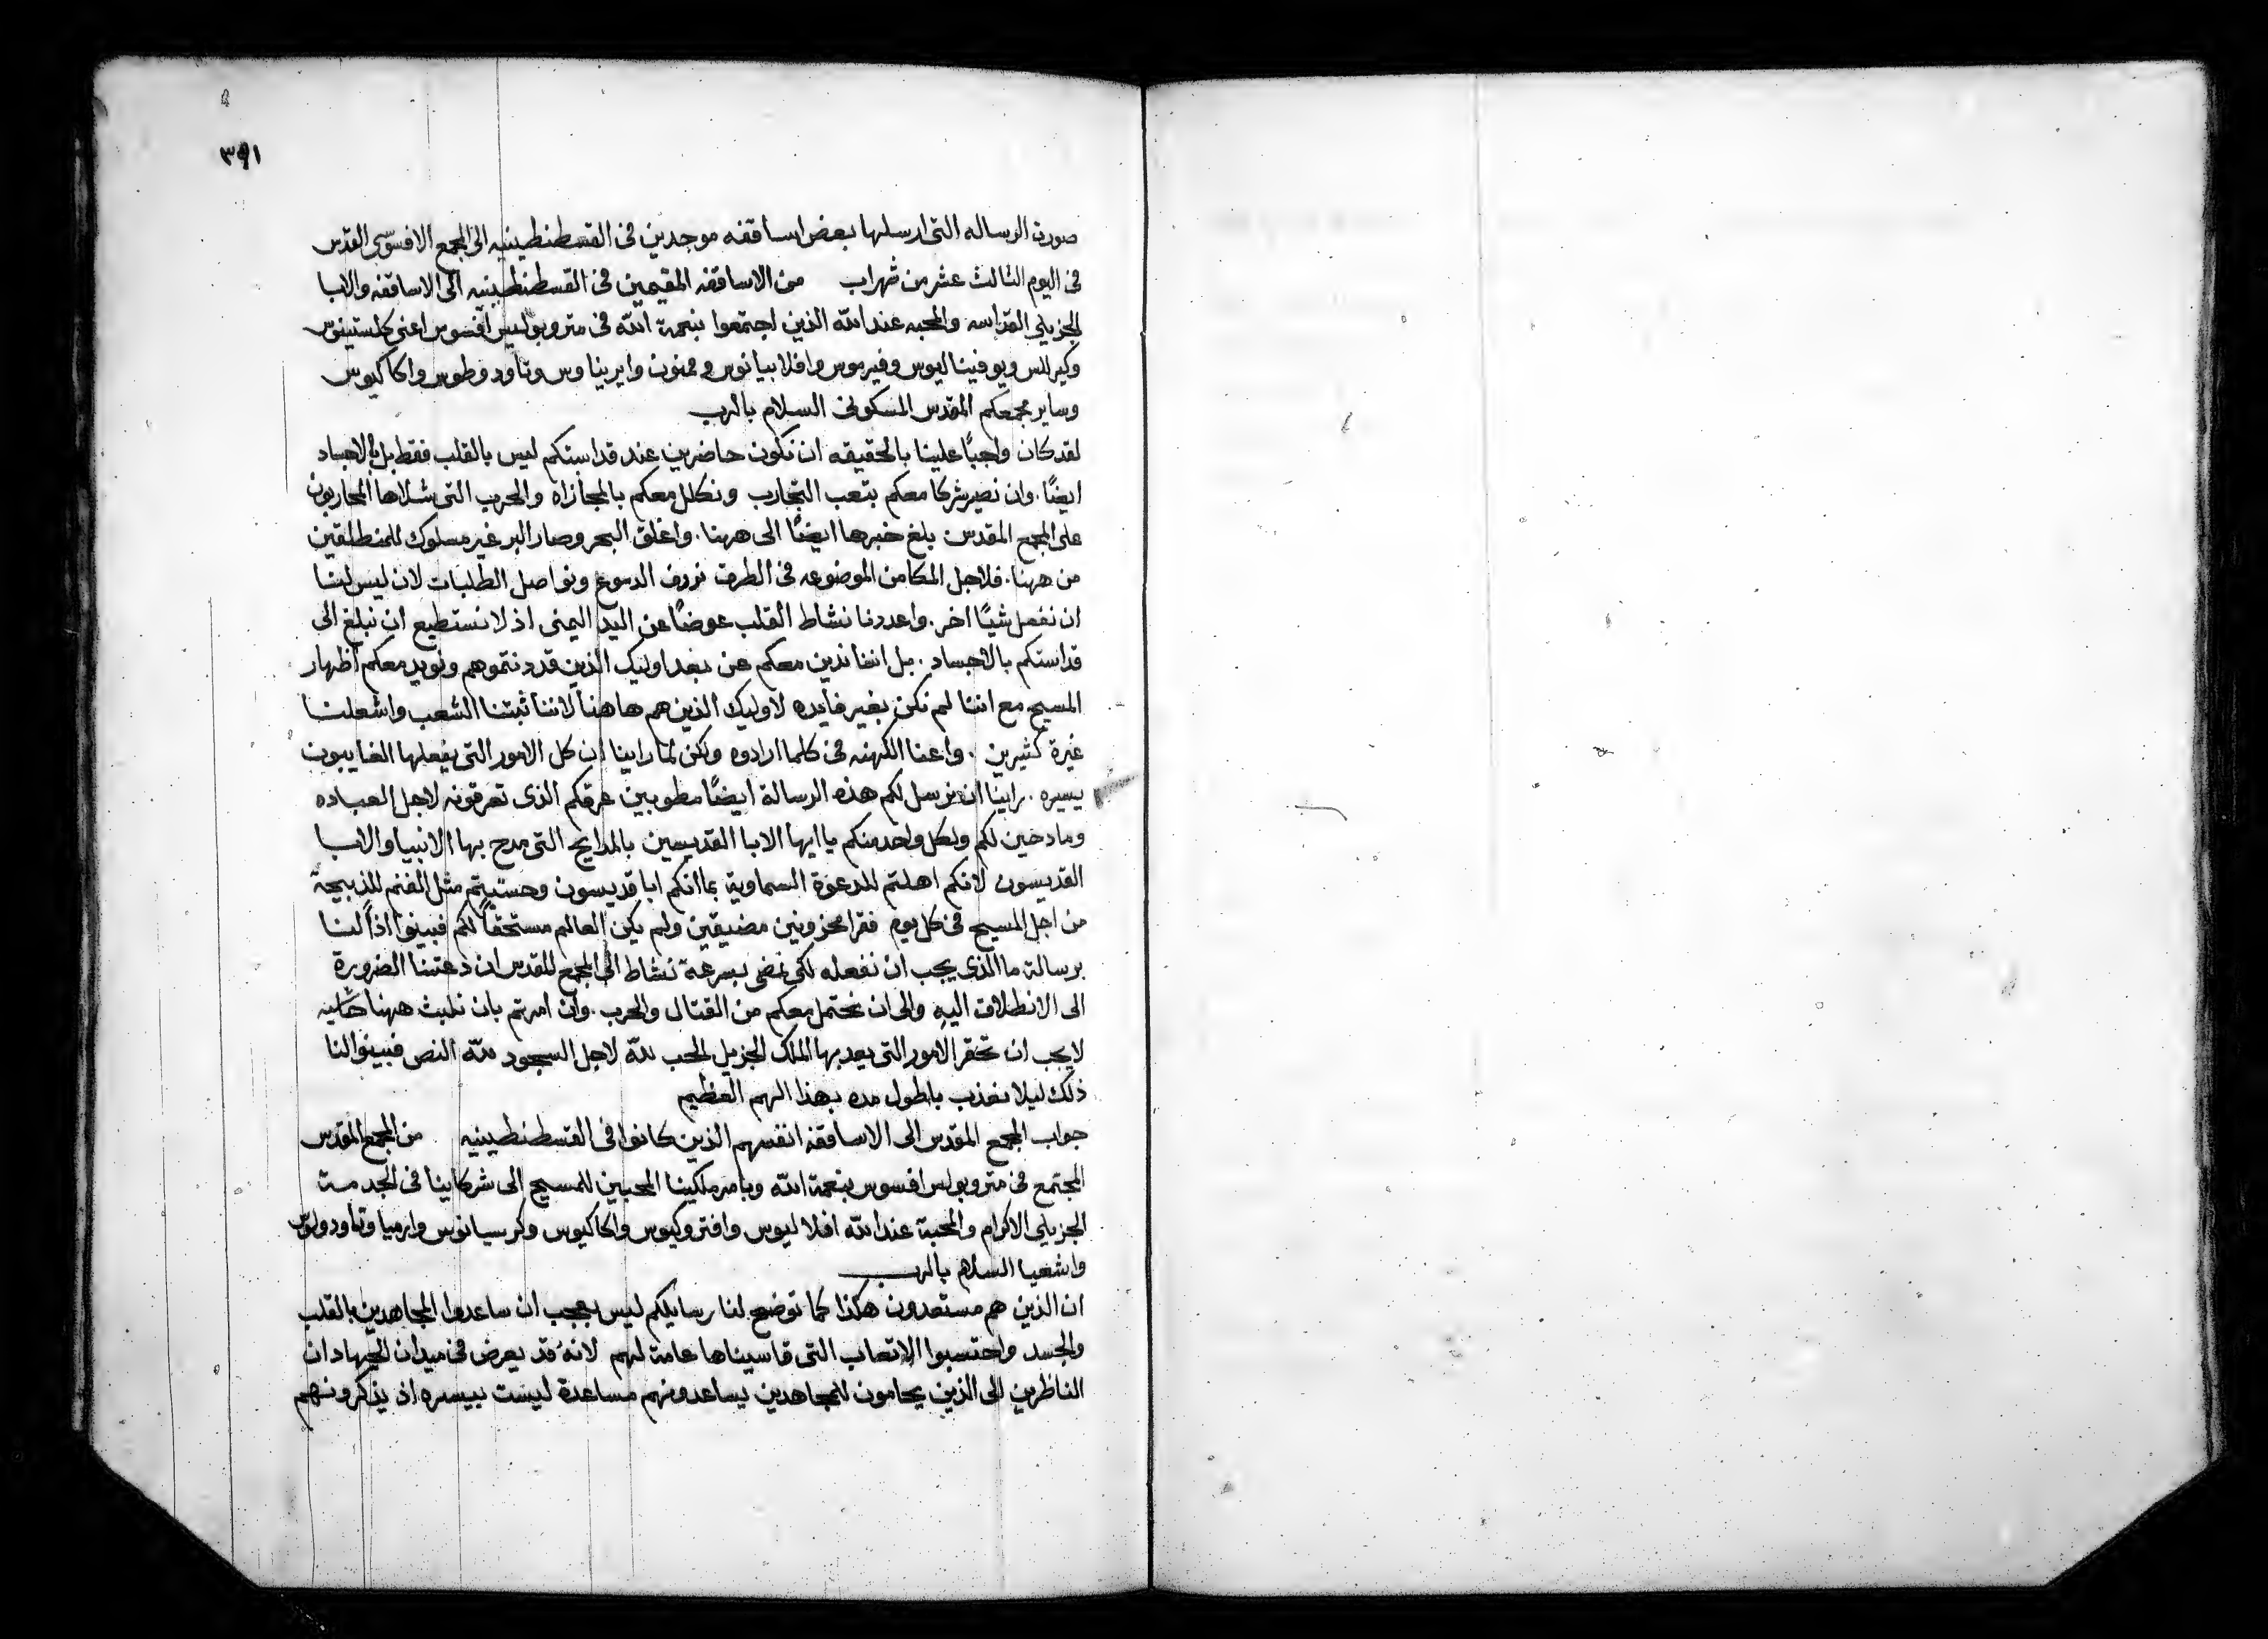 ٣٩١
صورت الرساله التى ارسلها بعض اساقفه موجدين فى القسطنطينيه الى المجمع الافسوسى المقدس
فى اليوم الثالث عشر من شهر اب من الاساقفه المقيمين فى القسطنطينيه الى الاساقفه والابا
الجزيلى القداسه والمحبه عند الله الذين اجتمعوا بنعمة الله فى متروبوليس افسوس اعنى كلستينوس
وكيرللس ويوفيناليوس وفيرموس وافلابيانوس وممنون وايريناوس وتاودوطوس واكاكيوس
وساير مجمعكم المقدس المسكونى السلام بالرب
لقد كان واجبًا علينا بالحقيقه ان نكون حاضرين عند قداستكم ليس بالقلب فقط بل بالاجساد
ايضًا. وان نصير شركا معكم بتعب التجارب ونكلل معكم بالمجازاه والحرب التى شلاها المحاربون
على المجمع المقدس بلغ خبرها ايضًا الى ههنا. واغلق البحر وصار البر غير مسلوك للمنطلقين
من ههنا. فلاجل المكامن الموضوعه فى الطرق نذرف الدموع ونواصل الطلبات لان ليس لنا
ان نفعل شيًا اخر. واعددنا نشاط القلب عوضًا عن اليد اليمنى اذ لا نستطيع ان نبلغ الى
قداستكم بالاجساد. بل اننا ندين معكم عن بعد اوليك الذين قد دنتموهم ونويد معكم اظهار
المسيح مع اننا لم نكن بغير فايده لاوليك الذين هم هاهنا لاننا ثبتنا الشعب واشعلنا
غيرة كثيرين. واعنا الكهنه فى كلما ارادوه ولكن لما راينا ان كل الامور التى يفعلها الغايبون
يسيره. راينا ان نرسل لكم هذه الرسالة ايضًا مطوبين عرقكم الذى تعرقونه لاجل العباده
ومادحين لكم ولكل واحد منكم يا ايها الابا القديسين بالمدايح التى مدح بها الانبيا والابا
القديسون لانكم اهلتم للدعوة السماوية بما انكم ابا قديسون وحسبتم مثل الغنم للذبيحة
من اجل المسيح فى كل يوم فقرا محزونين مضيقين ولم يكن العالم مستحقًا لكم فبينوا اذًا لنا
برسالة ما الذى يجب ان نفعله لكى نمضى بسرعة نشاط الى المجمع المقدس ان دعتنا الضرورة
الى الانطلاق اليه والى ان نحتمل معكم من القتال والحرب. وان امرتم بان نلبث ههنا
لا يجب ان تحقر الامور التى يعد بها الملك الجزيل الحب لله لاجل السجود لله النص فبينوا لنا
ذلك ليلا نعذب باطول مده بهذا الهم العظيم
جواب المجمع المقدس الى الاساقفه انفسهم الذين كانوا فى القسطنطينيه من المجمع المقدس
المجتمع فى متروبولس افسوس بنعمة الله وبامر ملكينا المحبين للمسيح الى شركاينا فى الخدمة
الجزيلى الاكرام والمحبة عند الله افلاليوس وافتروكيوس واكاكيوس وكرسيانوس وارميا وتاودولوس
واشعيا السلام بالرب
ان الذين هم مستعدون هكذا كما توضح لنا رسايلكم ليس بعجب ان ساعدوا المجاهدين بالقلب
والجسد واحتسبوا الاتعاب التى قاسيناها عامة لهم لانه قد يعرض فى ميدان الجهاد ان
الناظرين الى الذين يحامون للمجاهدين يساعدونهم مساعدة ليست بيسره اذ يذكرونهم